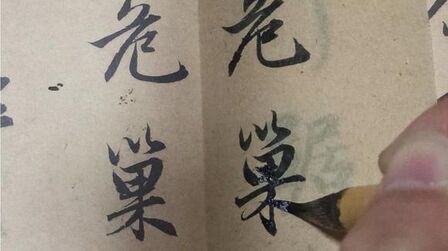 危巢
危巢